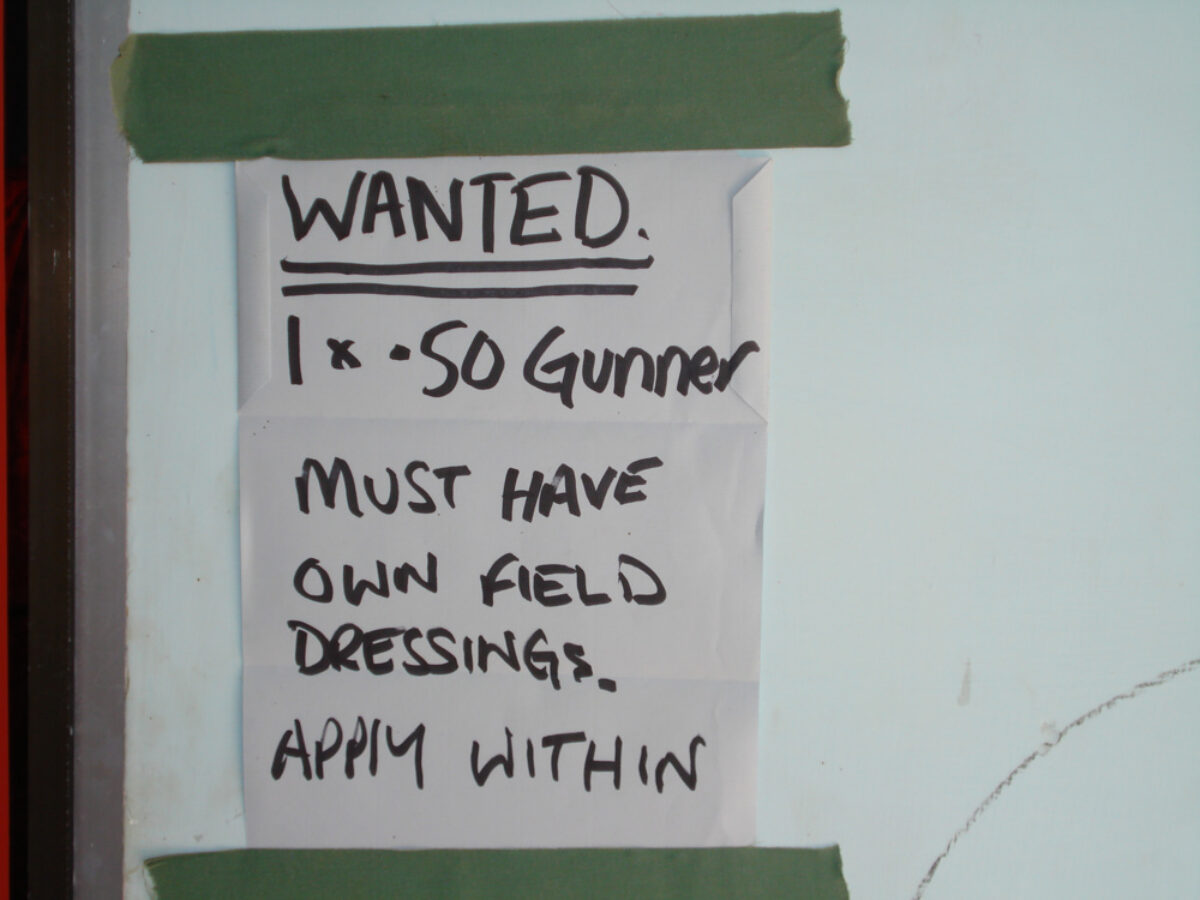 WANTED.
1 x .50 Gunner
MUST HAVE
OWN FIELD
DRESSINGS.
APPLY WITHIN